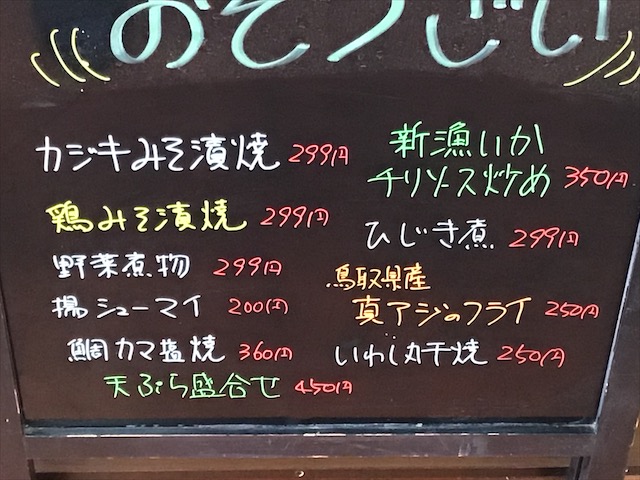 おそうざい
カジキみそ漬焼 299円
鶏みそ漬焼 299円
野菜煮物 299円
揚シューマイ 200円
鯛カマ塩焼 360円
天ぷら盛合せ 450円
新漁いか
チリソース炒め 350円
ひじき煮 299円
鳥取県産
真アジのフライ 250円
いわし丸干焼 250円